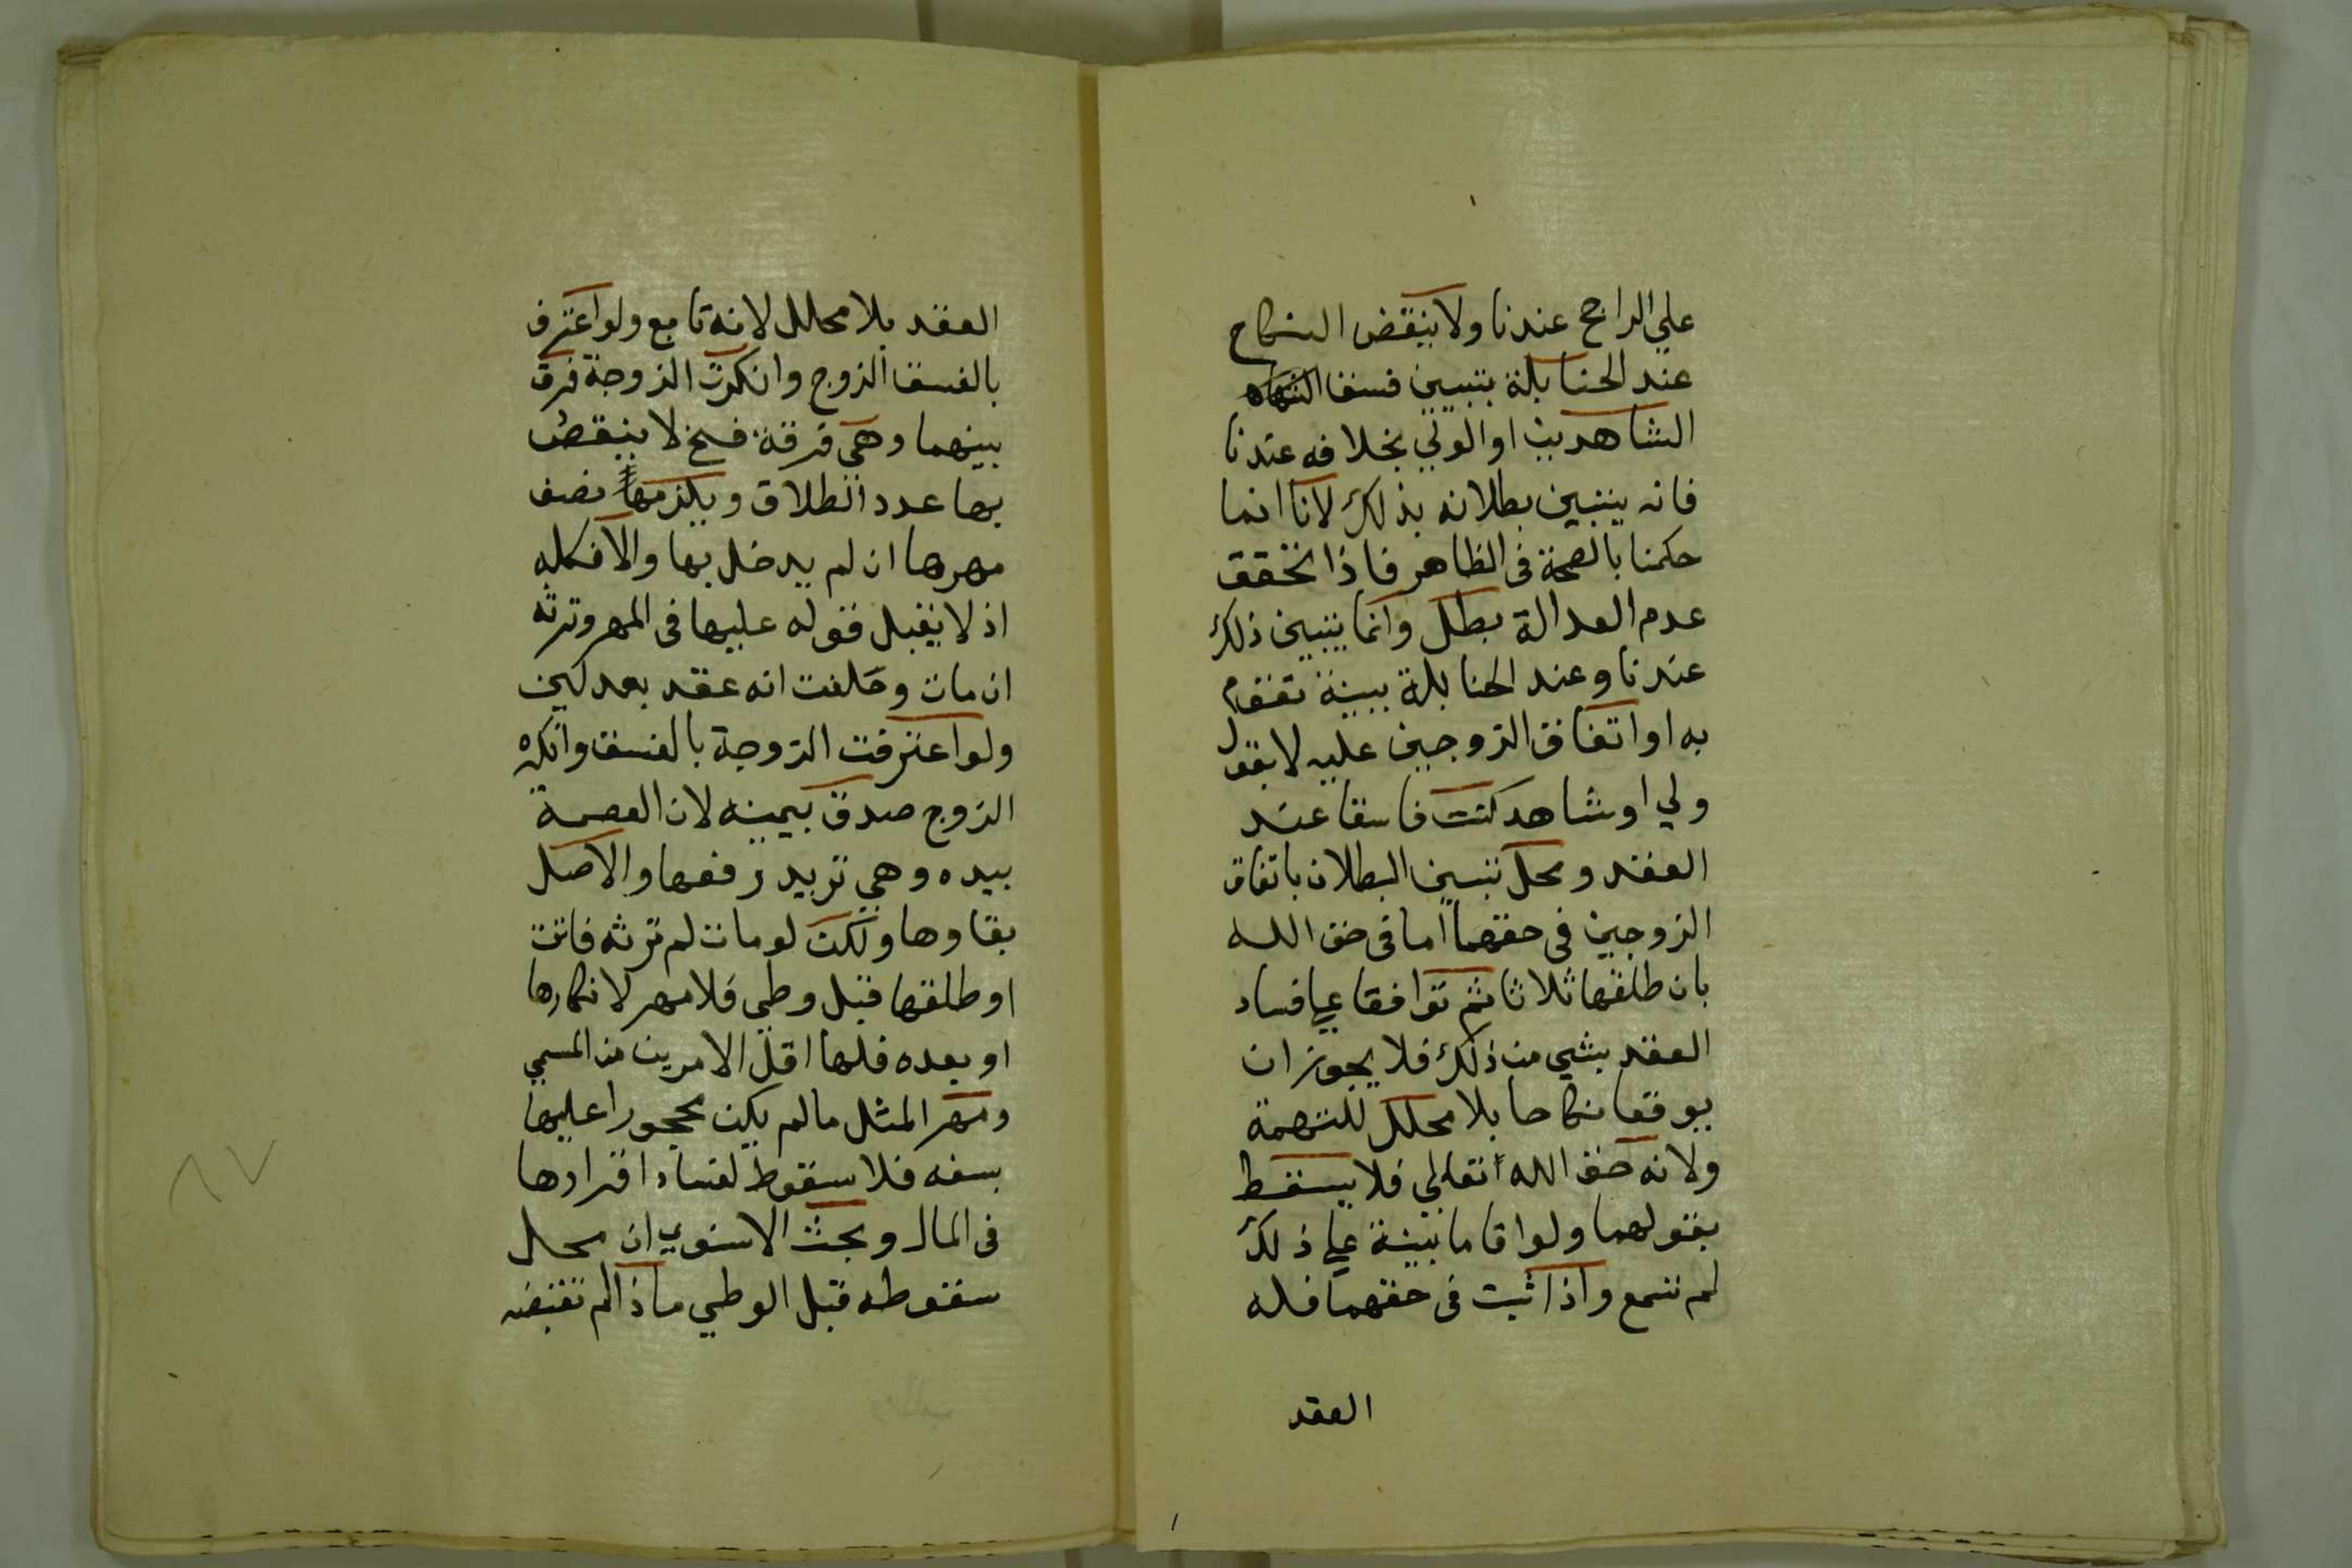 علي الراجح عندنا ولا ينقض النكاح
عند الحنابلة بتبين فسق
الشاهدين او الولي بخلافه عندنا
فانه يتبين بطلانه بذلك لانا انما
حكمنا بالصحة فى الظاهر فاذا تحقق
عدم العدالة بطل وانما يتبين ذلك
عندنا وعند الحنابلة ببينة تقوم
به او اتفاق الزوجين عليه لا بقول
ولي او شاهد كنت فاسقا عند
العقد ومحل تبين البطلان باتفاق
الزوجين فى حقهما اما فى حق الله
بان طلقها ثلاثا ثم توافقا علي فساد
العقد بشي من ذلك فلا يجوز ان
يوقعا نكاحا بلا محلل للتهمة
ولانه حق الله تعالي فلا يسقط
بقولهما ولو اقاما بينة علي ذلك
لم تسمع واذا ثبت فى حقهما فله
العقد
العقد بلا محلل لانه تابع ولو اعترف
بالفسق الزوج وانكرت الزوجة فرق
بينهما وهي فرقة فسخ لا ينقض
بها عدد الطلاق ويلزمه نصف
مهرها ان لم يدخل بها والا فكله
اذ لا يقبل قوله عليها فى المهر وترثه
ان مات وحلفت انه عقد بعدلين
ولو اعترفت الزوجة بالفسق وانكره
الزوج صدق بيمينه لان العصمة
بيده وهي تريد رفعها والاصل
بقاوها ولكن لو مات لم ترثه فاتت
او طلقها قبل وطي فلا مهر لانكارها
او بعده فلها اقل الامرين من المسمي
ومهر المثل ما لم يكن محجورا عليها
بسفه فلا سقوط لفساد اقرارها
فى المال وبحث الاسنوي ان محل
سقوطه قبل الوطي ماذا لم تقبضه